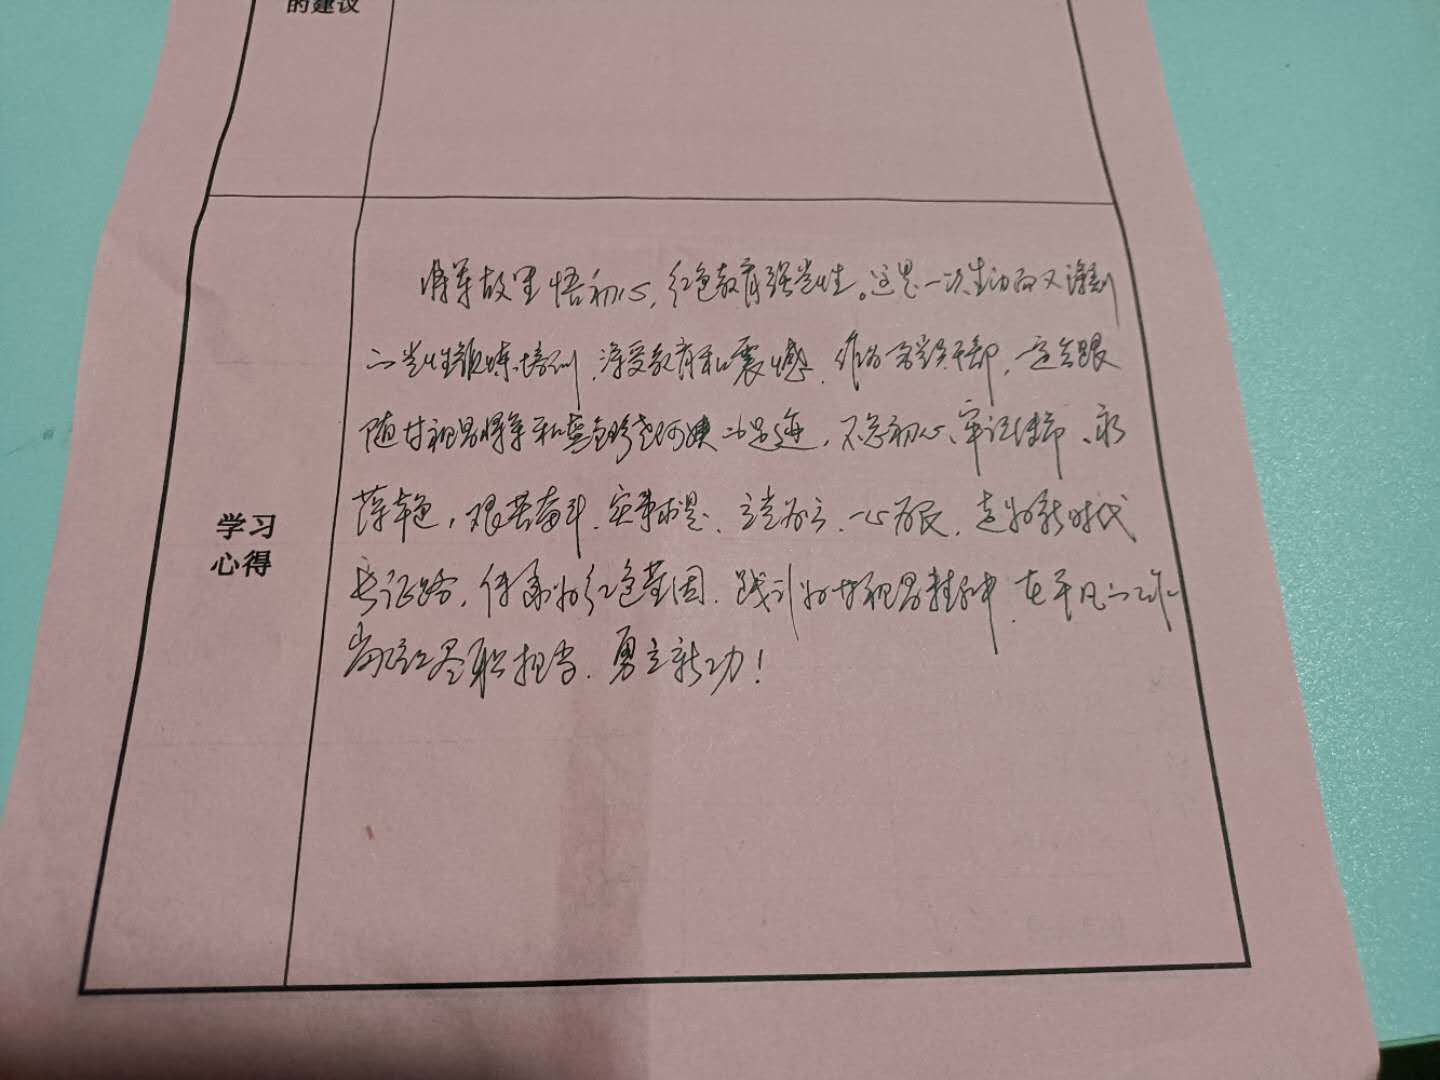 的建议
将军故里悟初心，红色教育强党性。这是一次生动而又深刻
的党性锻炼培训，深受教育和震撼。作为党员干部，一定会跟
随甘祖昌将军和龚全珍老阿姨的足迹，不忘初心、牢记使命、永
葆本色，艰苦奋斗、实事求是、立党为公、一心为民，走好新时代
长征路，传承好红色基因，践行好甘祖昌精神，在平凡的工作
岗位上尽职担当，勇立新功！
学习
心得